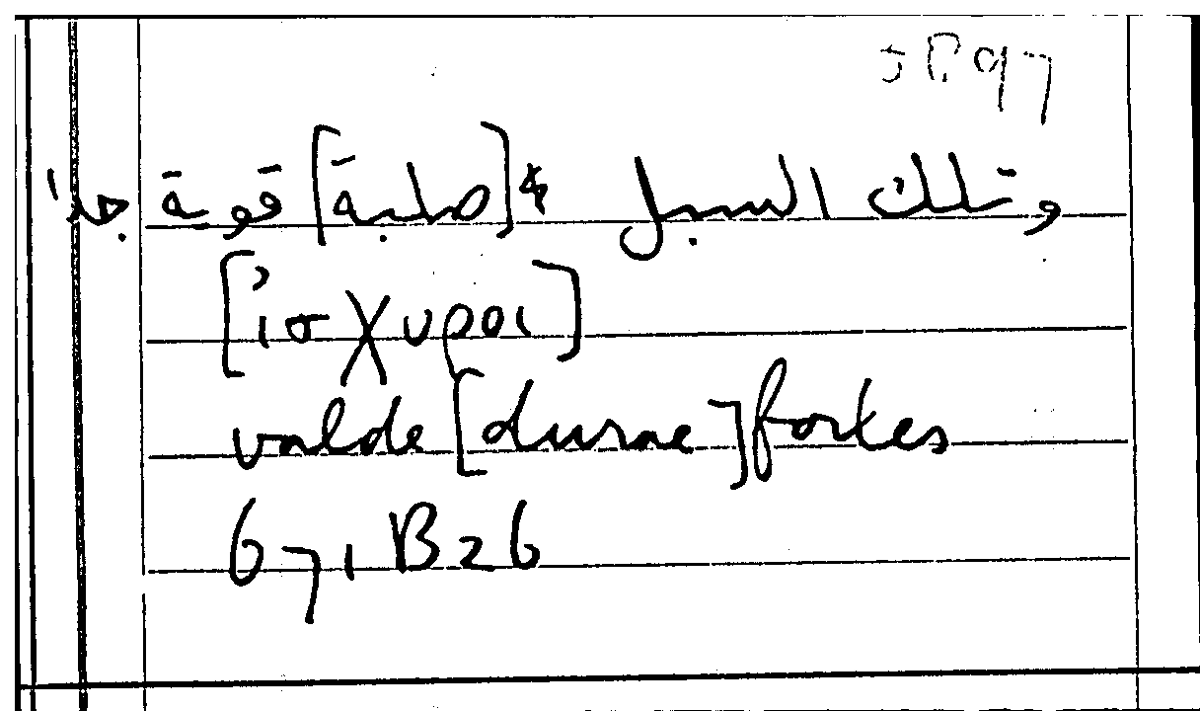 JP. 97
وتلك السبل * [صلبة] قوية جدا
[ἰσχυροι]
valde [durae] fortes
671 B 26